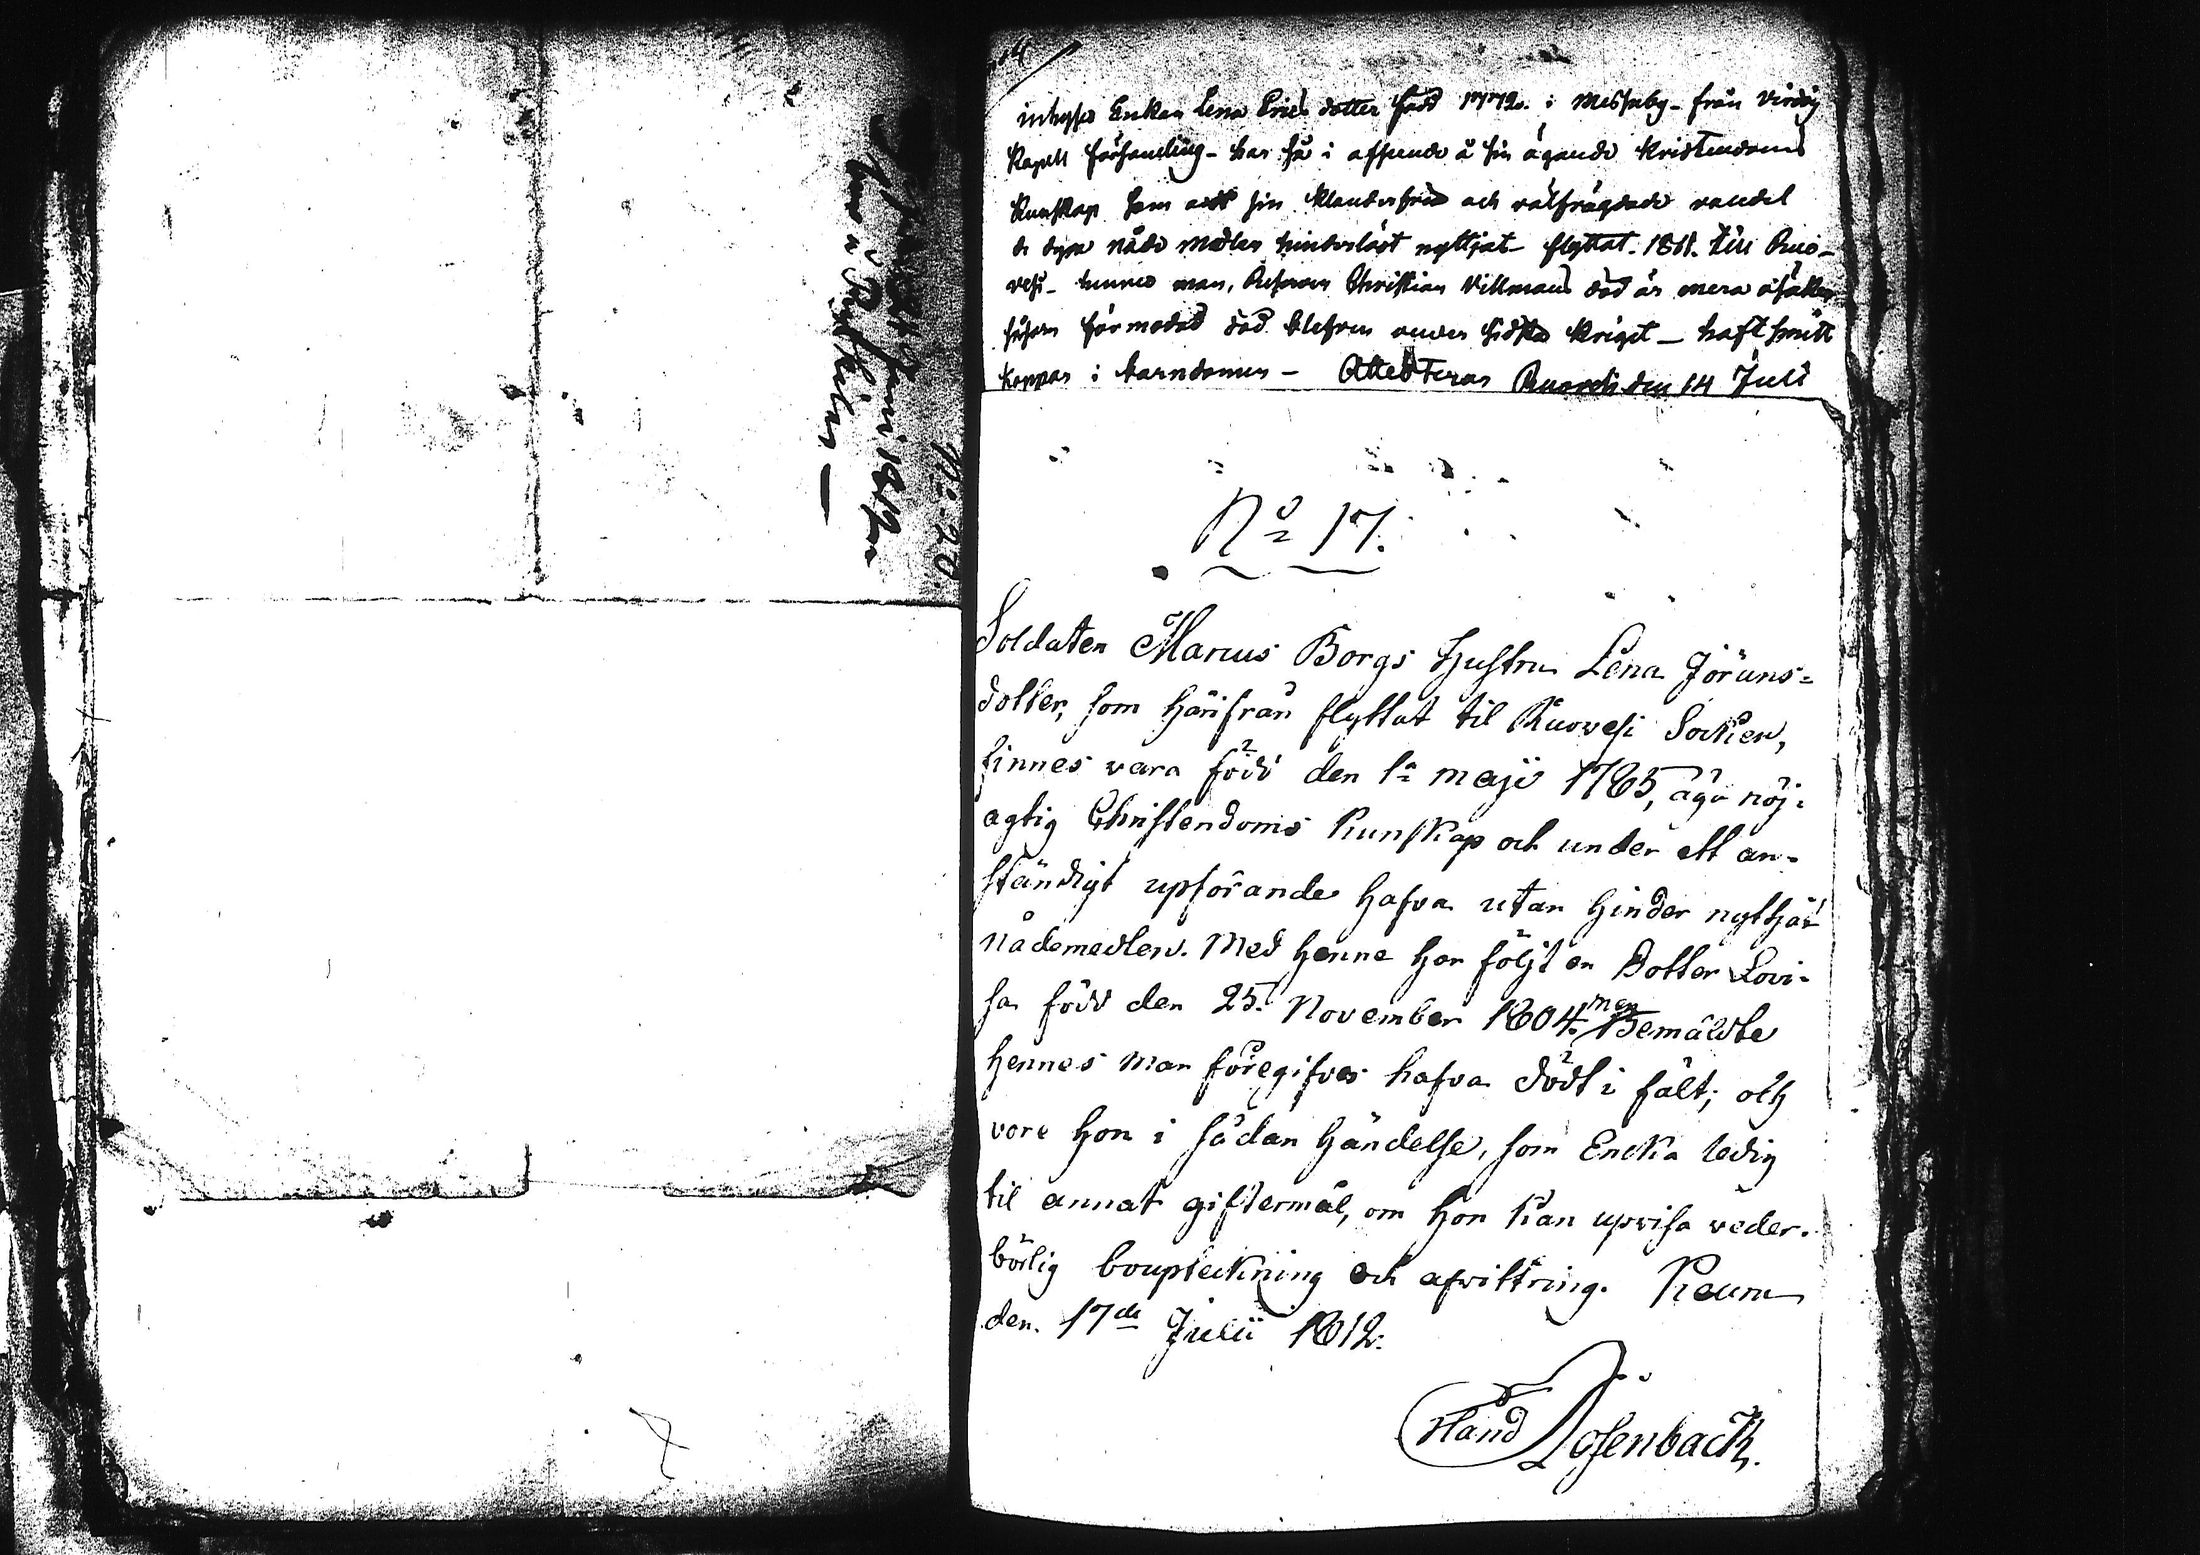 No 20.
inhyses Enkan Lena Erics dotter född 1772. i Messuby - från
Kapell församling - har så i afseende å sin ägande Kristendoms
Kunskap som ock sin klanderfria och välfrägdade vandel
de dyra nåde medlen hinderlöst nyttjat - flyttat 1811. till Ruo-
vesi - hennes man, Christian Villmans död är mera
såsom förmodad död blefven under sidsta kriget - haft
koppor i barndomen - Attesteras Ruovesi den 14 Juli
No 17.
Soldaten Marcus Borgs Hustru Lena Jörans-
dotter, som härifrån flyttat til Ruovesi Socken,
finnes vara född den 1a maji 1765, äga nöj-
agtig Christendoms Kunskap och under ett an-
ständigt upförande hafva utan hinder nyttjat
nådemedlen. Med henne har följt en Dotter Lovi-
sa född den 25. November 1804. men Bemäldte
hennes man föregifves hafva dödt i fält; och
vore hon i sådan händelse, som Encka ledig
til annat giftermål, om hon kan upvisa veder-
börlig boupteckning och afvittring. Keuru
den 17de Julii 1812.
Hand Rosenback.